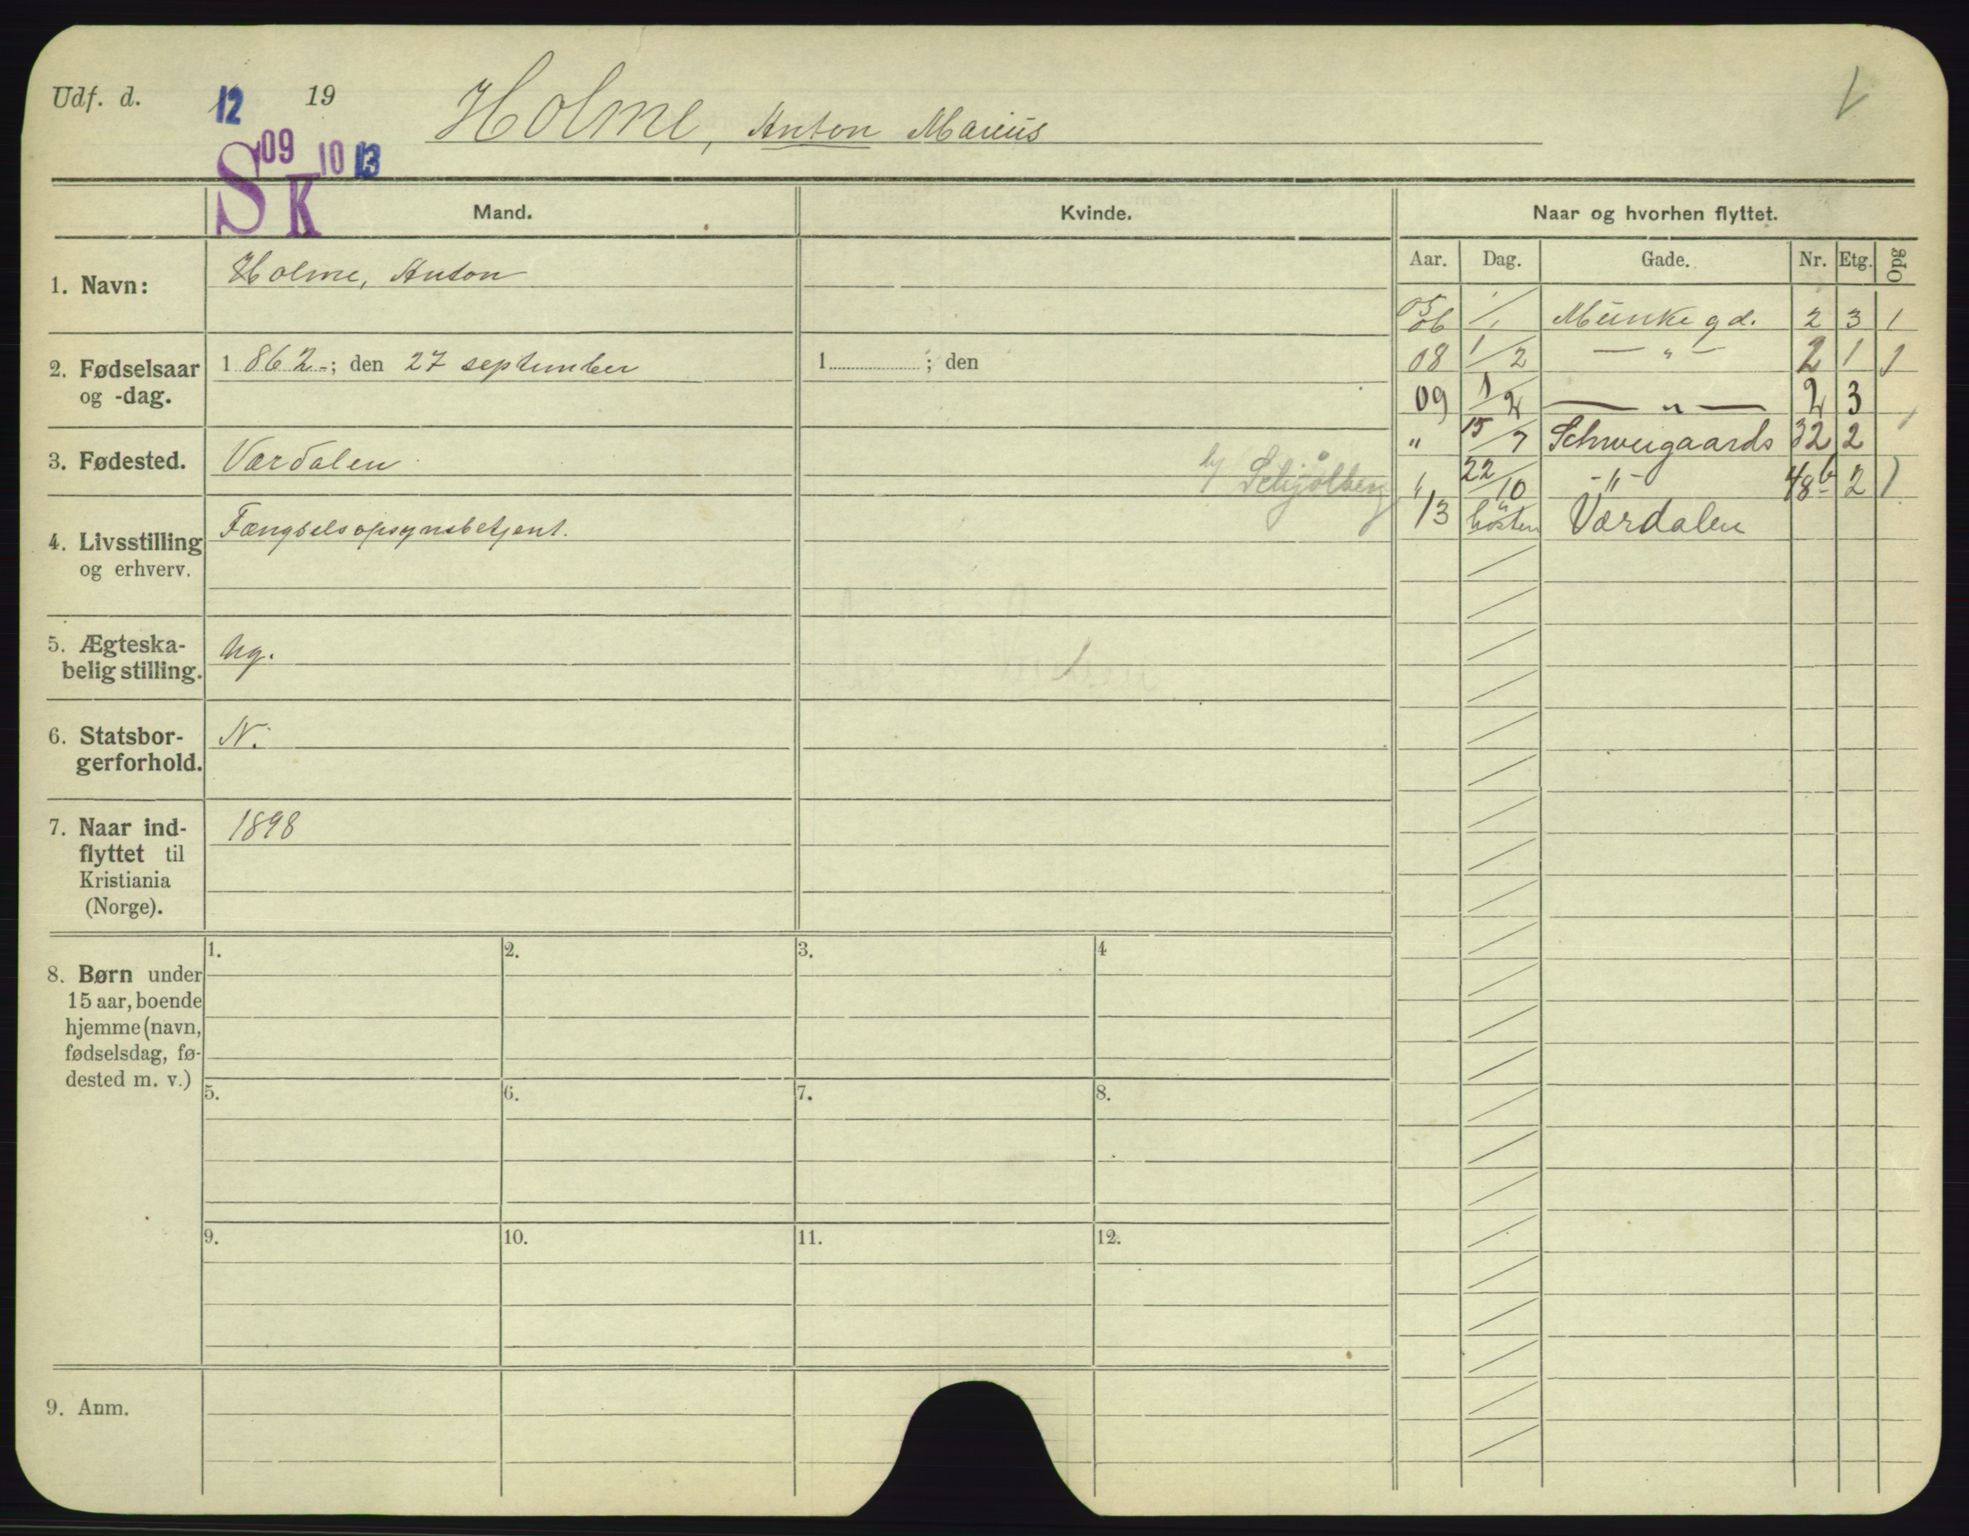 Udf. d. 12 19
Holme, Anton Marius
S 09 K 10 13
Mand.
Kvinde.
Naar og hvorhen flyttet.
Aar. Dag. Gade. Nr. Etg. Opg
1. Navn: Holme, Anton
2. Fødselsaar og -dag.
1862 ; den 27 september
1 ; den
3. Fødested. Værdalen
b/ Schjølberg
4. Livsstilling og erhverv.
Fængselsopsynsbetjent.
5. Ægteska-
belig stilling.
Ug.
6. Statsbor-
gerforhold.
N.
7. Naar ind-
flyttet til
Kristiania
(Norge).
1898
05/06 1/1 Munkegd. 2 3 1
08 1/2 — " — 2 1 1
09 1/2 — " — 2 3
" 15/7 Schweigaards 32 2
" 22/10 - " - 48b 2 1
13 høsten Værdalen
8. Børn under
15 aar, boende
hjemme (navn,
fødselsdag, fø-
dested m. v.)
1. 2. 3. 4
5. 6. 7. 8.
9. 10. 11. 12.
9. Anm.